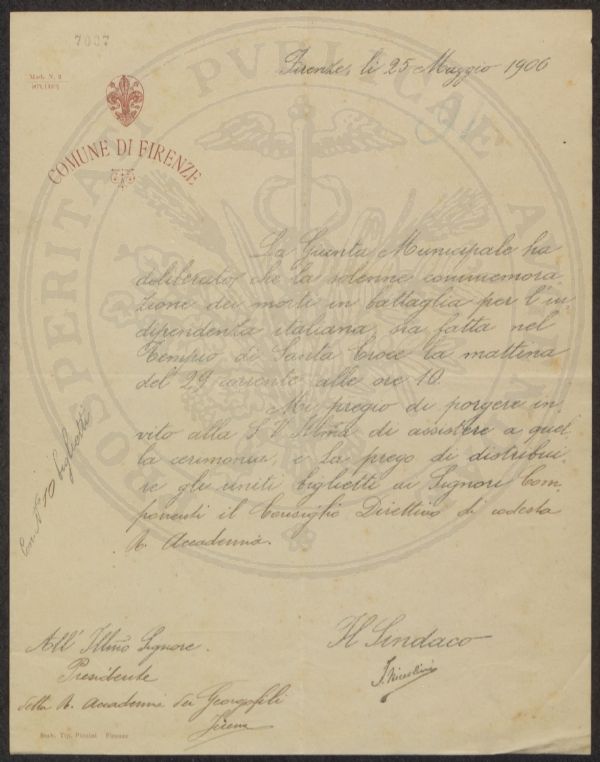 7007
Firenze, li 25 Maggio 1906
Mod. N. 2
COMUNE DI FIRENZE
PROSPERITATI PVBLICAE AVGENDAE
La Giunta Municipale ha
deliberato che la solenne commemora
zione dei morti in battaglia per l'in
dipendenza italiana sia fatta nel
Tempio di Santa Croce la mattina
del 29 corrente alle ore 10.
Mi pregio di porgere in
vito alla S. V. Illma di assistere a quel
la cerimonia, e La prego di distribui
re gli uniti biglietti ai Signori Com
ponenti il Consiglio Direttivo di codesta
R. Accademia.
Con N.° 10 biglietti
Il Sindaco
All' Illmo Signore
Presidente
della R. Accademia dei Georgofili
Firenze
Stab. Tip. Firenze